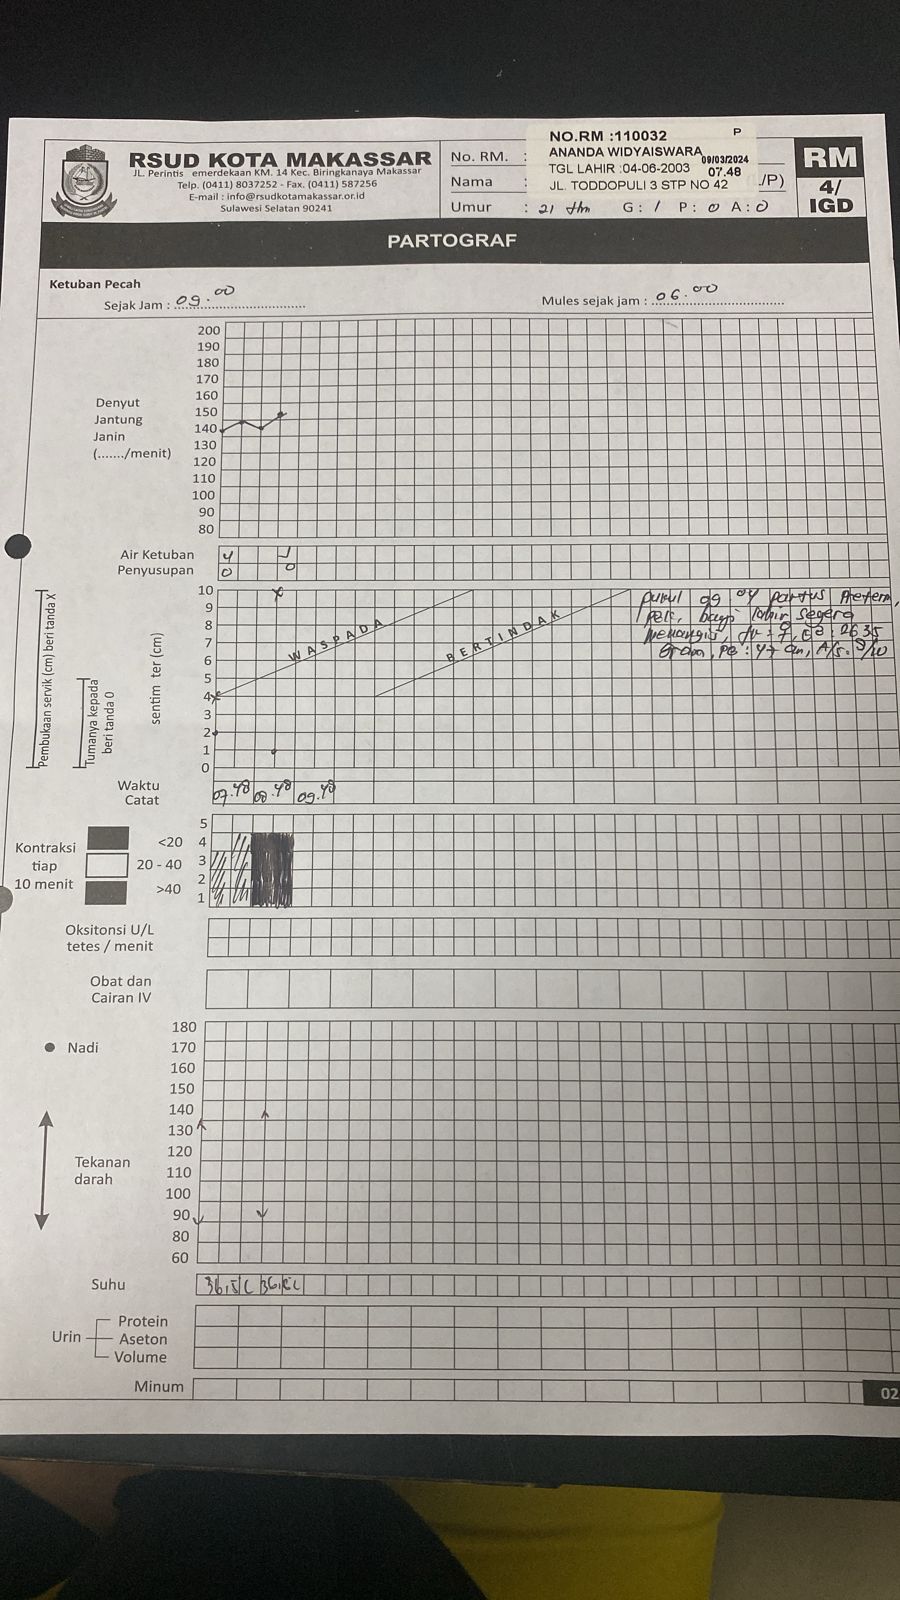 RSUD KOTA MAKASSAR
JL. Perintis emerdekaan KM. 14 Kec. Biringkanaya Makassar
Telp. (0411) 8037252 - Fax. (0411) 587256
E-mail : info@rsudkotamakassar.or.id
Sulawesi Selatan 90241
No. RM. :
Nama :
/P)
Umur : 21 thn G: 1 P: 0 A: 0
NO.RM :110032 P
ANANDA WIDYAISWARA 09/03/2024
TGL LAHIR :04-06-2003 07.48
JL. TODDOPULI 3 STP NO 42
RM
4/
IGD
PARTOGRAF
Ketuban Pecah
Sejak Jam : 09.00
Mules sejak jam : 06.00
Denyut
Jantung
Janin
(......./menit)
200
190
180
170
160
150
140
130
120
110
100
90
80
Air Ketuban
Penyusupan
0 0
Pembukaan servik (cm) beri tanda X
Tumanya kepada
beri tanda 0
sentim ter (cm)
10
9
8
7
6
5
4
3
2
1
0
WASPADA
BERTINDAK
pukul 09.04 partus
bayi lahir segera
menangis, 2635
gram, 47 cm, A/S:
Waktu
Catat
07.48 08.48 09.48
Kontraksi
tiap
10 menit
<20
20 - 40
>40
5
4
3
2
1
Oksitonsi U/L
tetes / menit
Obat dan
Cairan IV
Nadi
Tekanan
darah
180
170
160
150
140
130
120
110
100
90
80
60
Suhu
Urin
Protein
Aseton
Volume
Minum
02